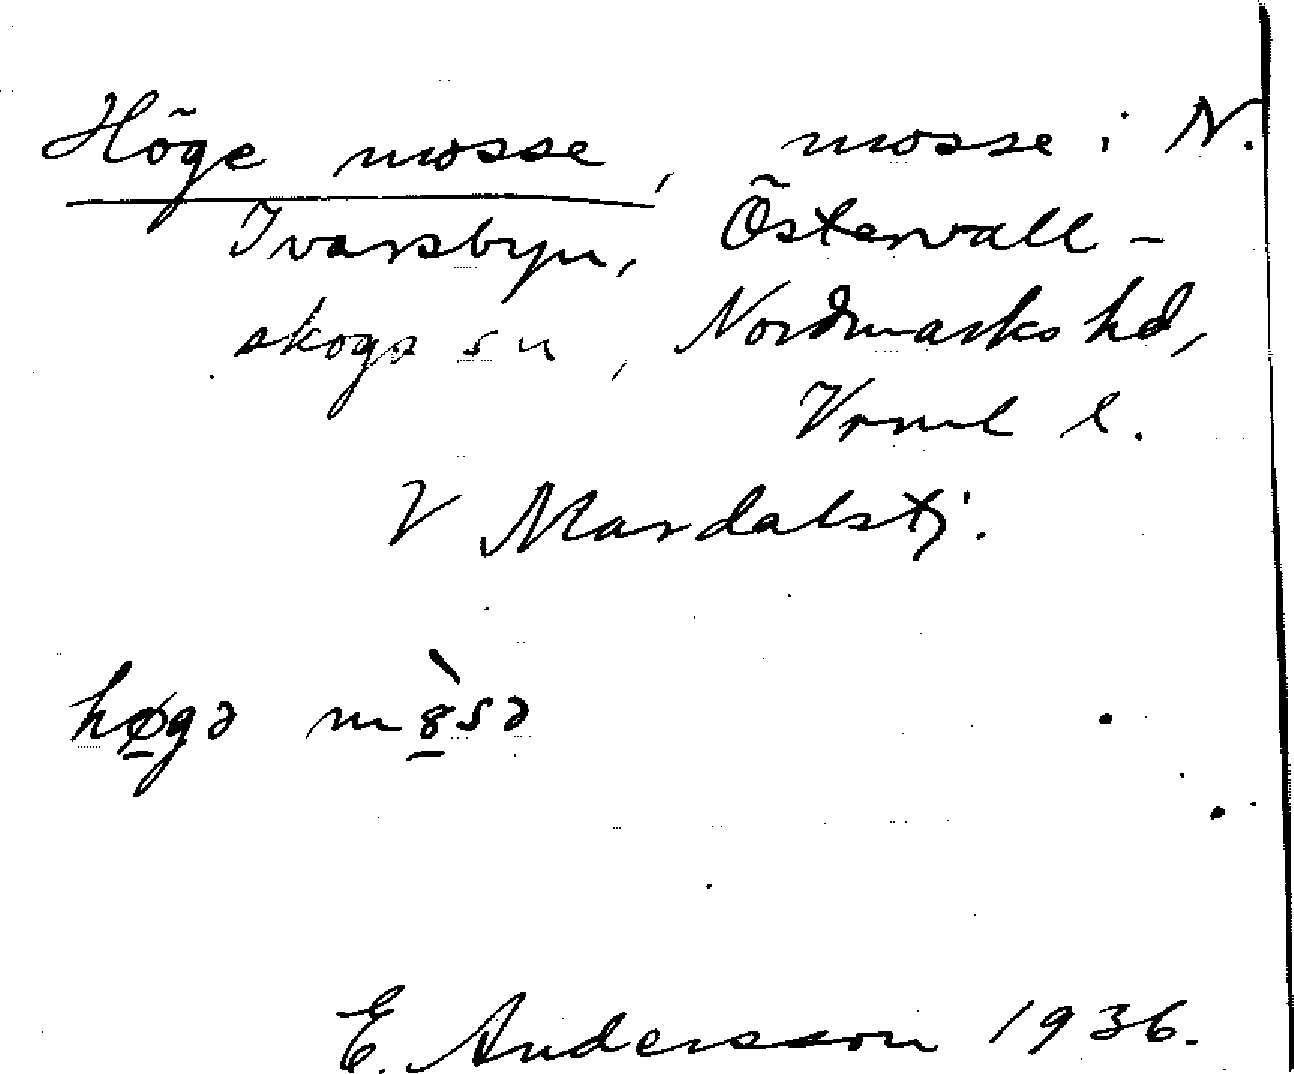 Höge mosse, mosse i N.
Ivarsbyn, Östervall-
skogs sn, Nordmarks hd,
Vrml l.
V Mardalstj.
høgə m8̀sə
E. Andersson 1936.